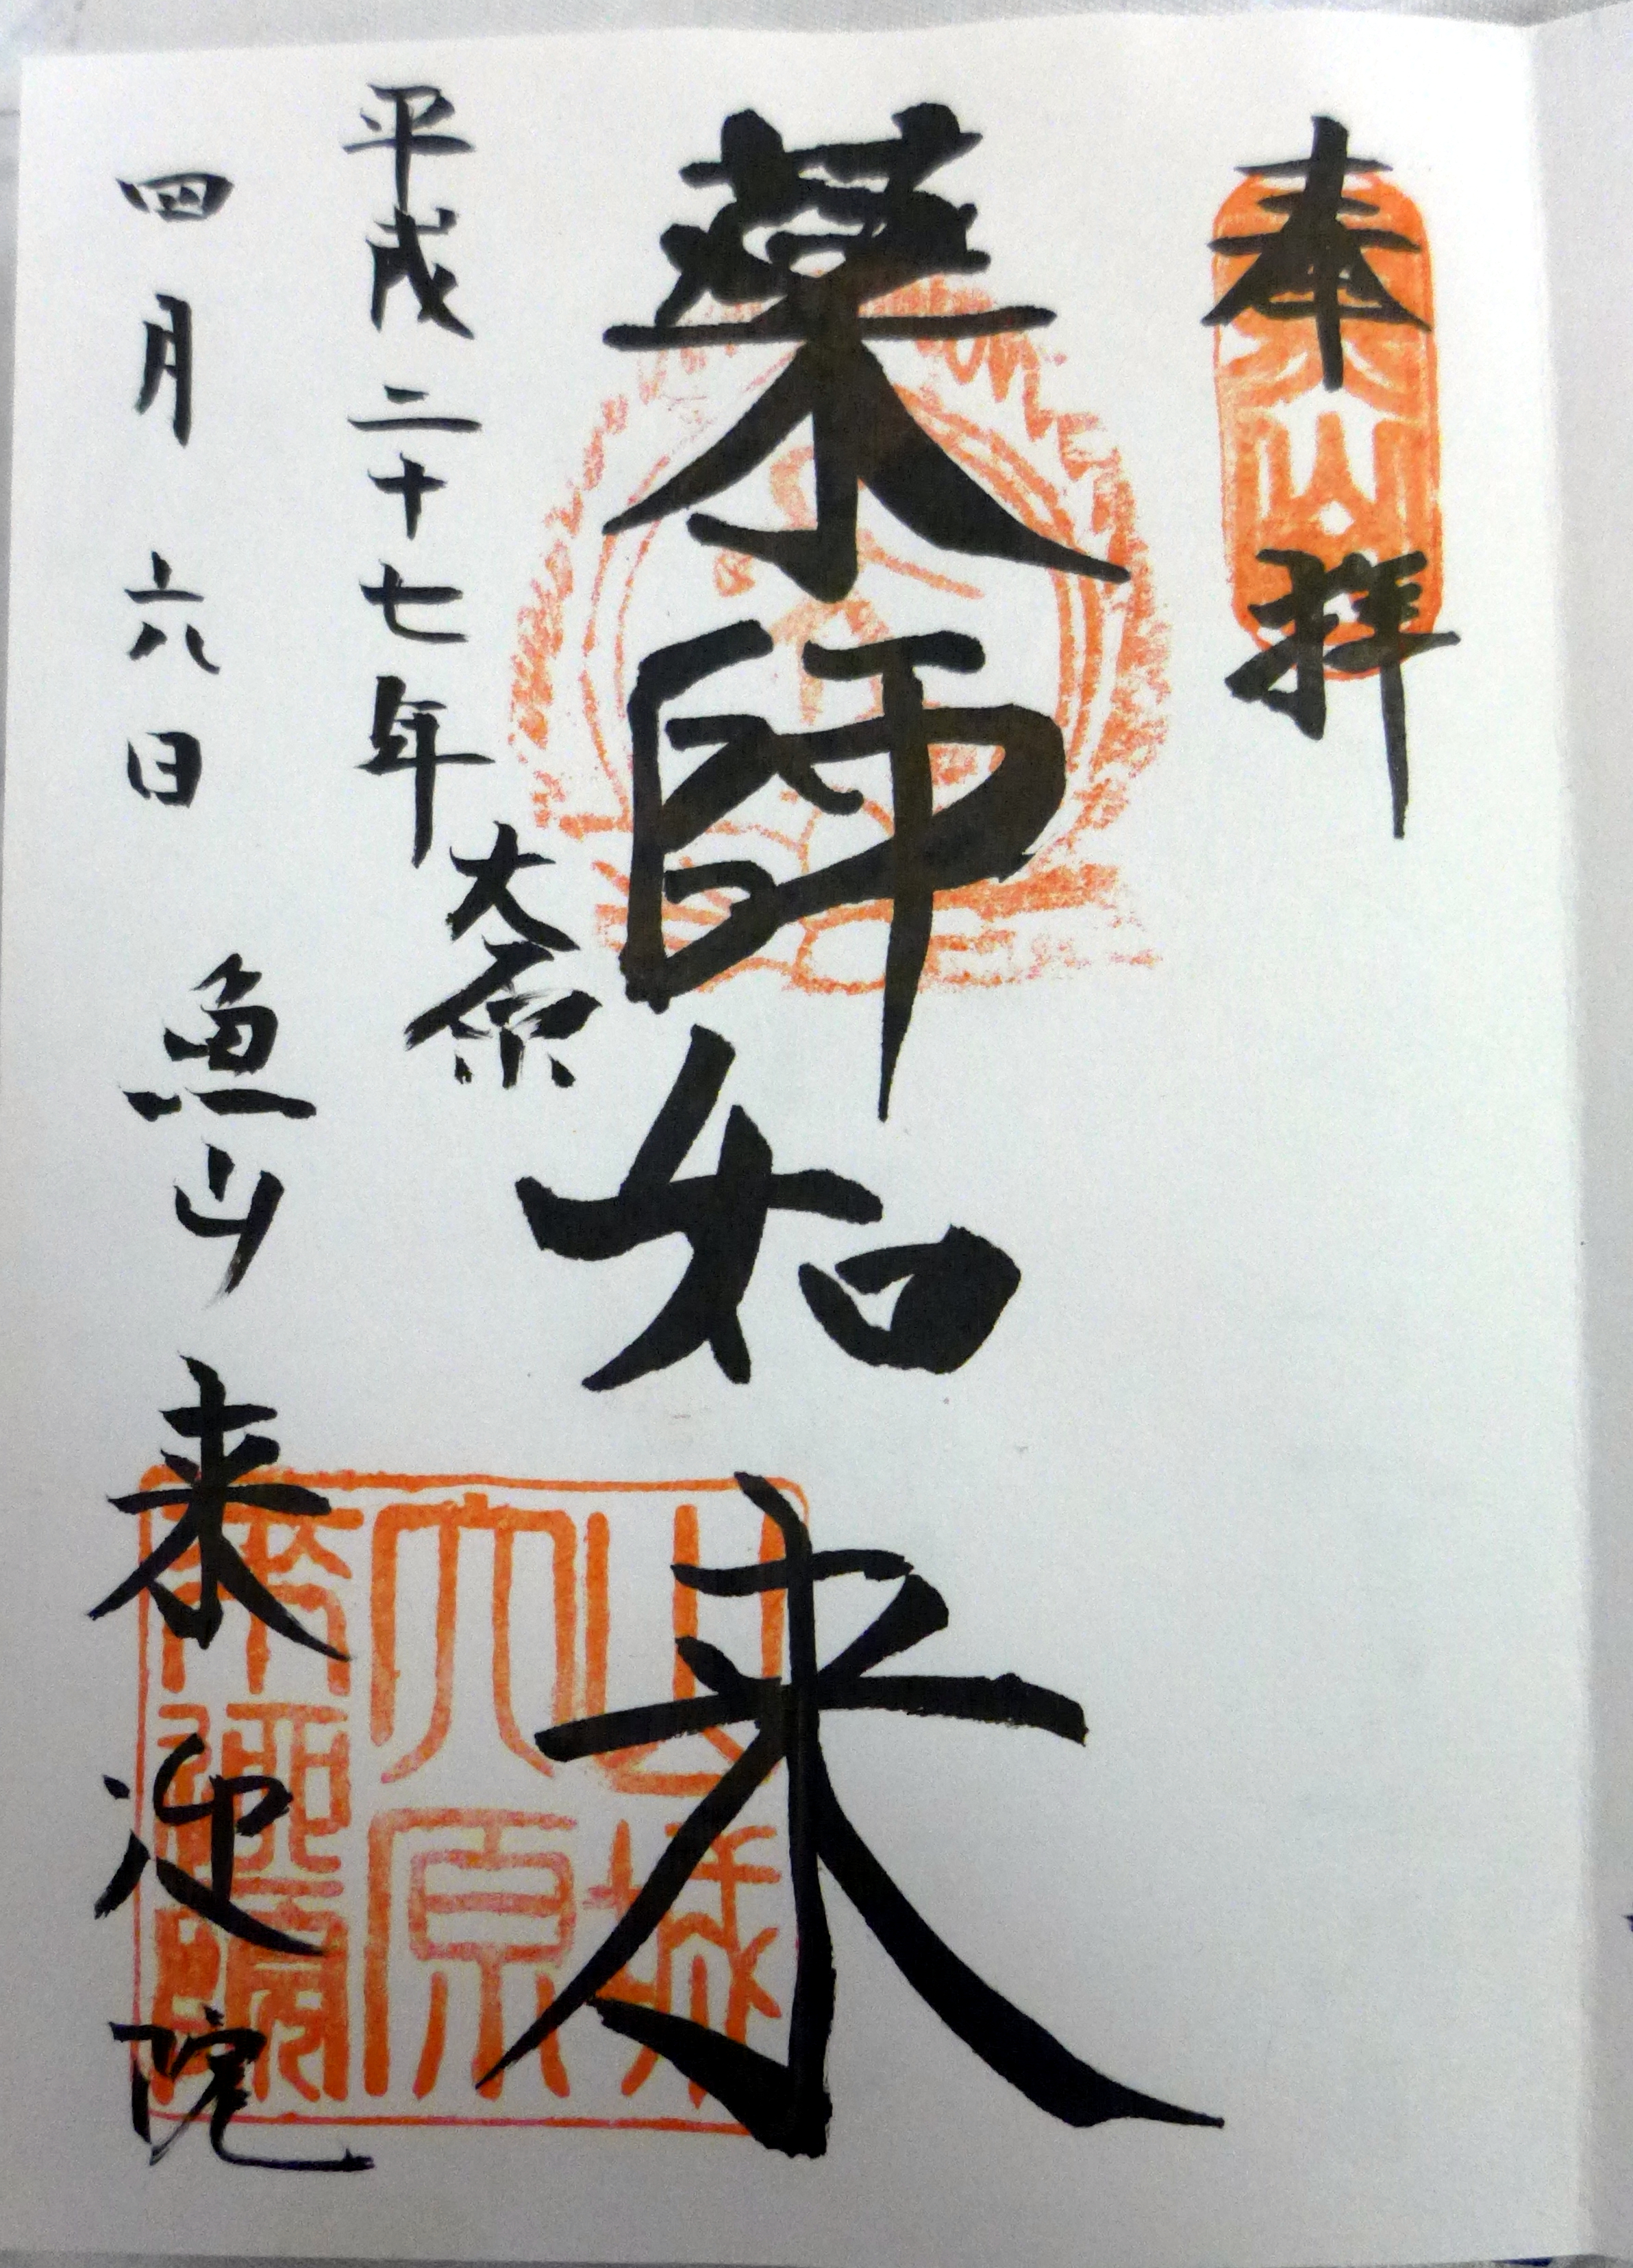 奉拝
魚山
薬師如来
大原
平成二十七年
四月六日
魚山来迎院
山城
大原
来迎院